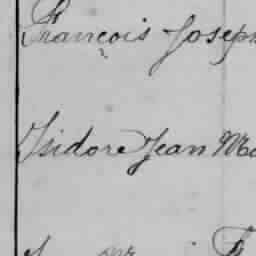 François Joseph
Isidore Jean Ma